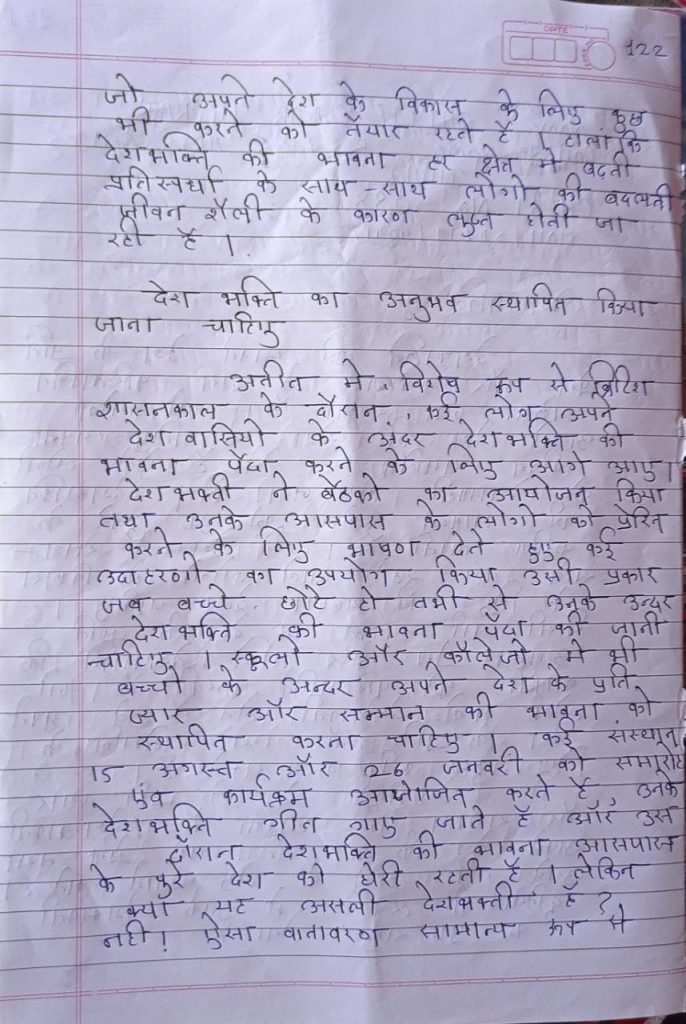 DATE
122
जो अपने देश के विकास के लिए कुछ
भी करने को तैयार रहते है । हालांकि
देशभक्ति की भावना हर क्षेत्र मे बढती
प्रतिस्पर्धा के साथ-साथ लोगो की बदलती
जीवन शैली के कारण लुप्त होती जा
रही है ।
देश भक्ति का अनुभव स्थापित किया
जाना चाहिए
अतीत मे, विशेष रूप से ब्रिटिश
शासनकाल के दौरान, कई लोग अपने
देश वासियो के अंदर देशभक्ति की
भावना पैदा करने के लिए आगे आए।
देशभक्ती ने बैठको का आयोजन किया
तथा उनके आसपास के लोगो को प्रेरित
करने के लिए भाषण देते हुए कई
उदाहरणो का उपयोग किया उसी प्रकार
जब बच्चे छोटे हो तभी से उनके उन्दर
देशभक्ति की भावना पैदा की जानी
चाहिए । स्कूलो और कॉलेजो मे भी
बच्चो के अन्दर अपने देश के प्रति
प्यार और सम्मान की भावना को
स्थापित करना चाहिए । कई संस्थान
15 अगस्त और 26 जनवरी को समारोह
एंव कार्यक्रम आयोजित करते है, उनके
देशभक्ति गीत गाए जाते है और उस
दौरान देशभक्ति की भावना आसपास
के पुरे देश को घेरी रहती है । लेकिन
क्या यह असली देशभक्ती है ?
नही ! ऐसा वातावरण सामान्य रूप से